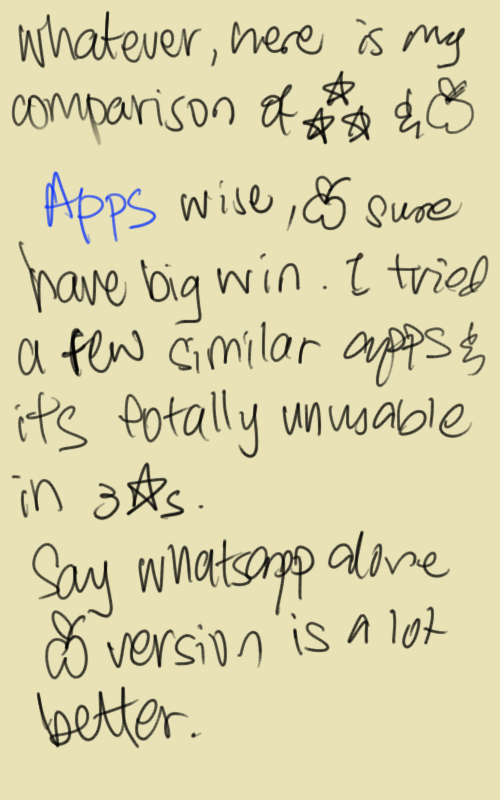 whatever, here is my
comparison of ☆☆☆ &
Apps wise, sure
have big win. I tried
a few similar apps &
it's totally unusable
in 3☆s.
Say whatsapp alone
version is a lot
better.